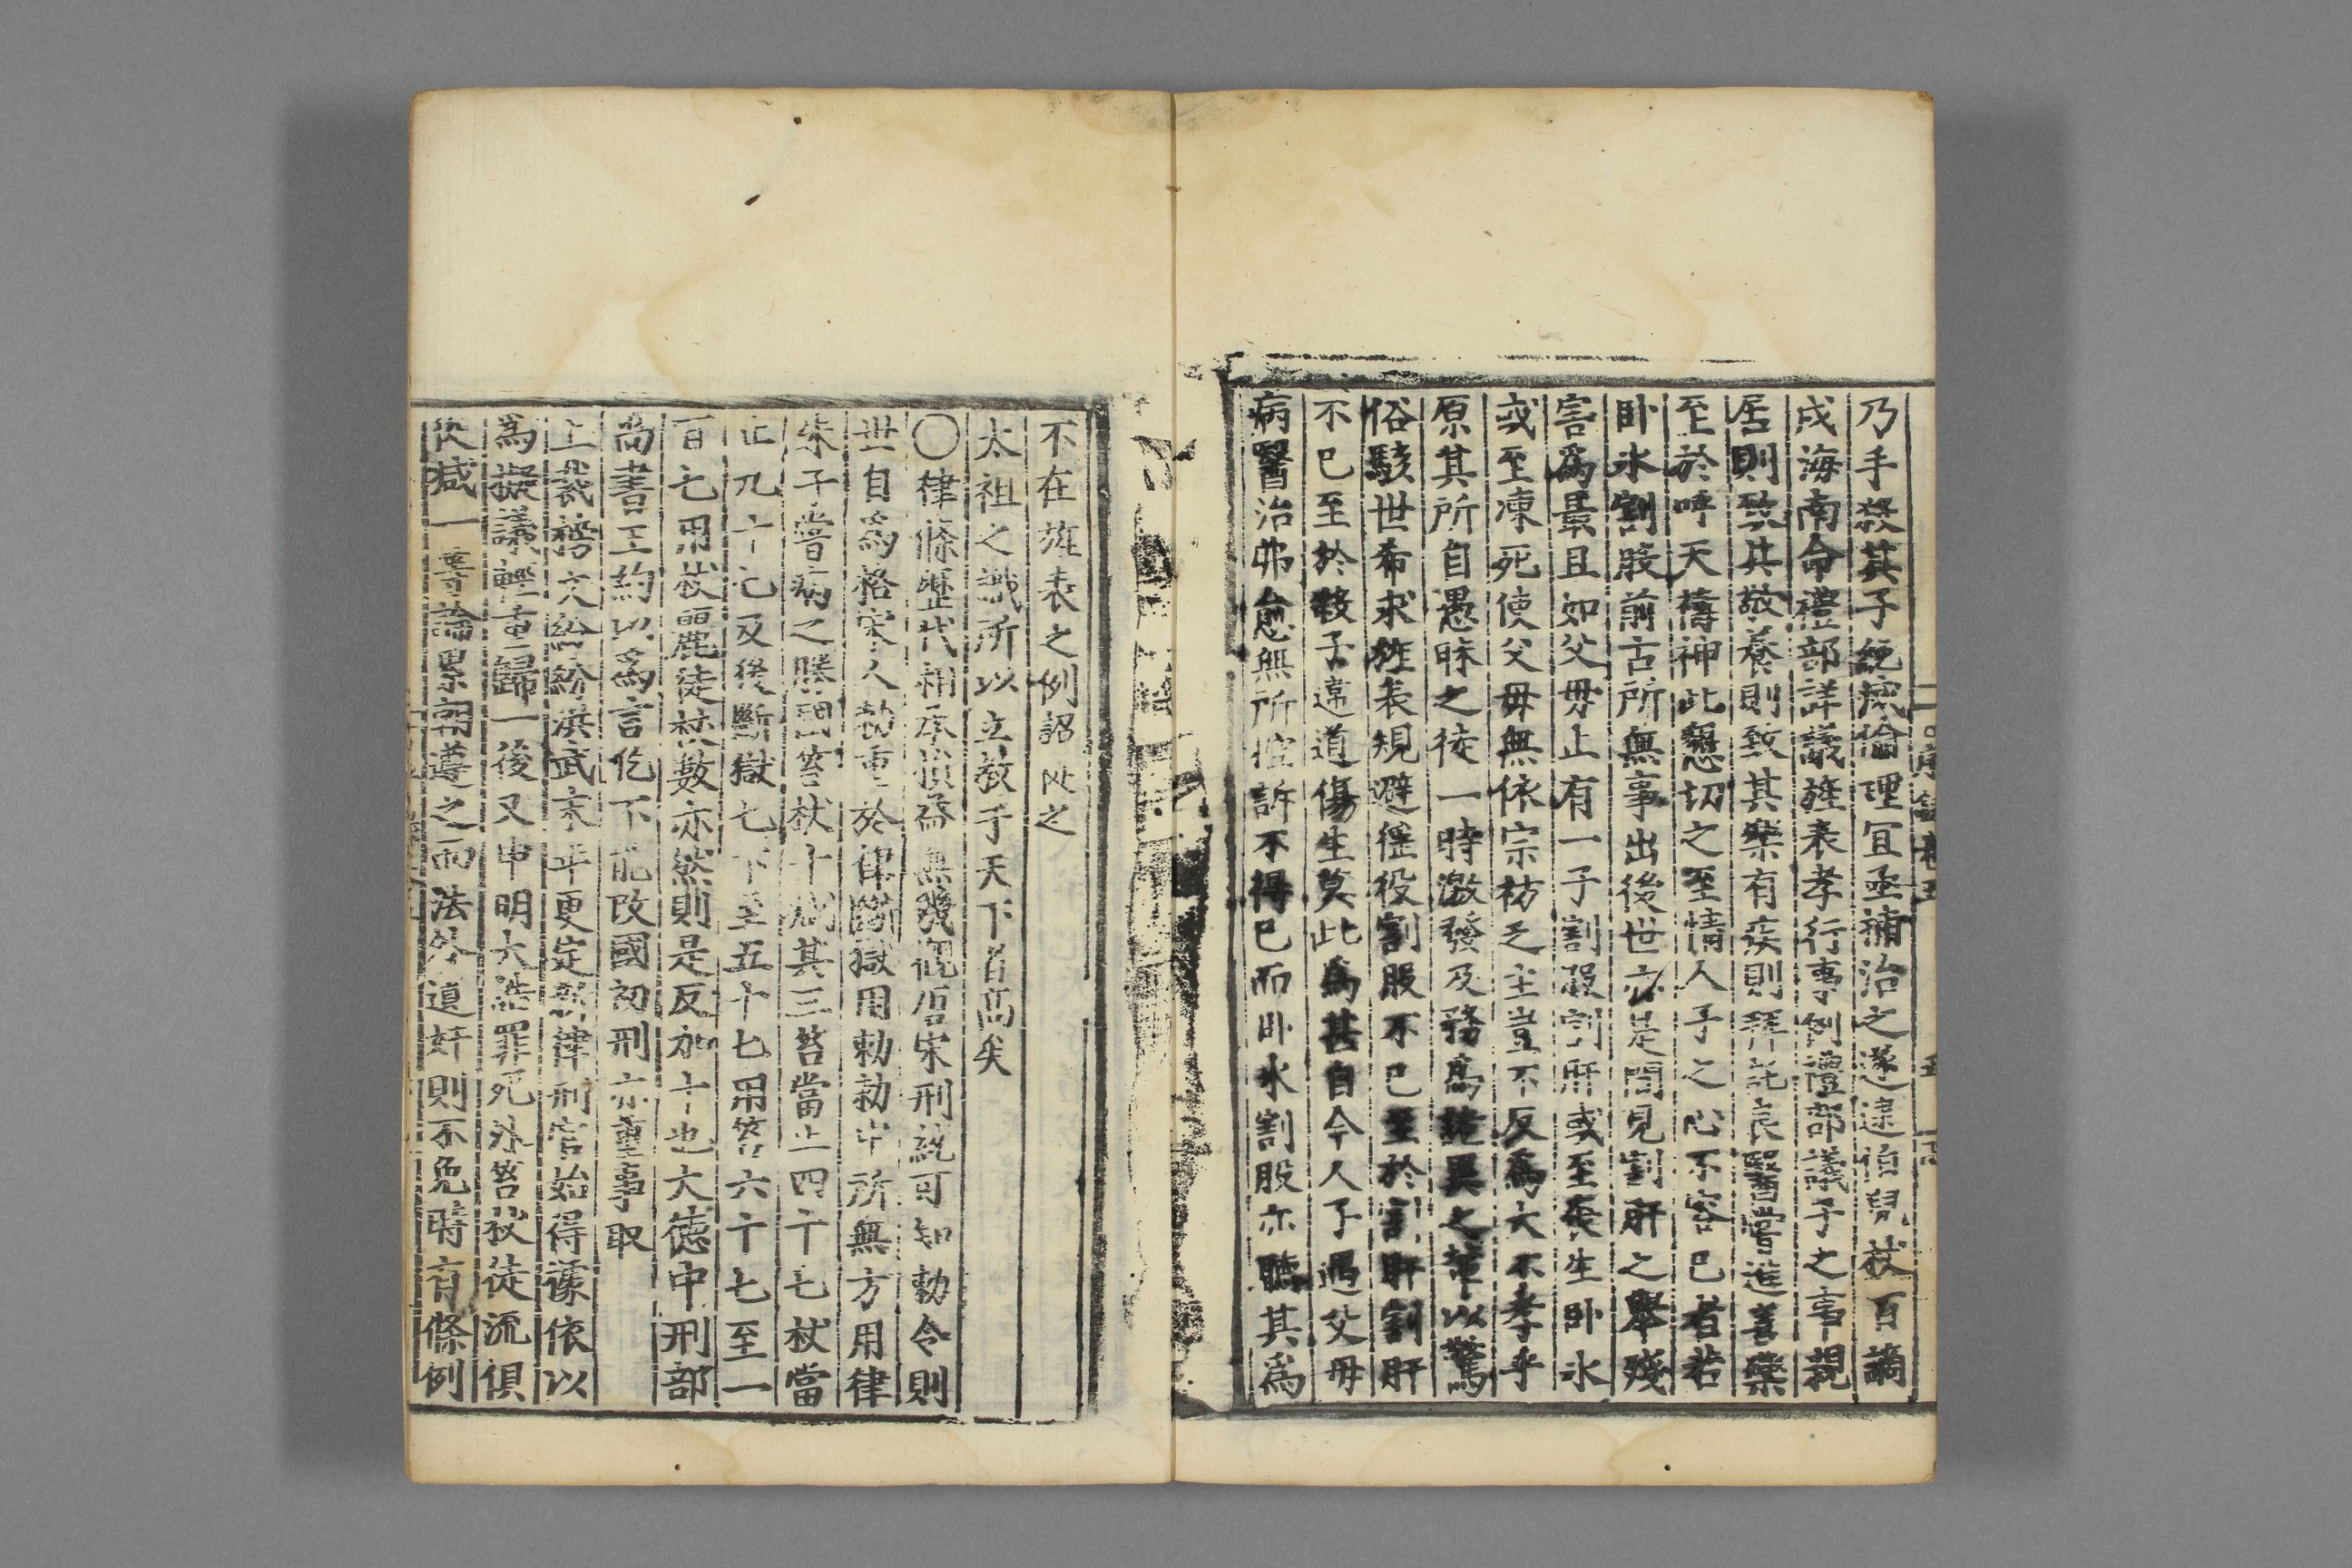 乃手殺其子絕滅倫理宜亟捕治之遂逮伯兒杖百謫
戍海南命禮部詳議旌表孝行事例禮部議子之事親
居則致其敬養則致其樂有疾則拜託良醫嘗進善藥
至於呼天禱神此懇切之至情人子之心不容已者若
卧冰割股前古所無事出後世亦是間見割肝之舉殘
害爲最且如父毋止有一子割股割肝或至喪生卧冰
或至凍死使父毋無依宗枋乏主豈不反爲大不孝乎
原其所自愚昧之徒一時激發及務爲詭異之輩以驚
俗駭世希求旌表規避徭役割股不已至於割肝割肝
不已至於殺子違道傷生莫此爲甚自今人子遇父毋
病醫治弗愈無所控訴不得已而卧氷割股亦聽其爲
不在旌表之例詔從之
太祖之識所以立教于天下者高矣
〇律條歷代相承損益無幾觀唐宋刑統可知勅令則
世自爲格宋人勅重於律斷獄用勅勅中所無方用律
朱子嘗病之勝國笞杖十減其三笞當止四十七杖當
止九十七及後斷獄七下至五十七用笞六十七至一
百七用杖麗徒杖數亦然則是反加十也大德中刑部
尚書王約以爲言仡不能改國初刑亦重事取
上裁榜文紛紛洪武末年更定新律刑官始得據依以
爲擬議輕重歸一後又申明大誥罪死外笞杖徒流俱
從減一等論累朝遵之而法外遺奸則不免時有條例